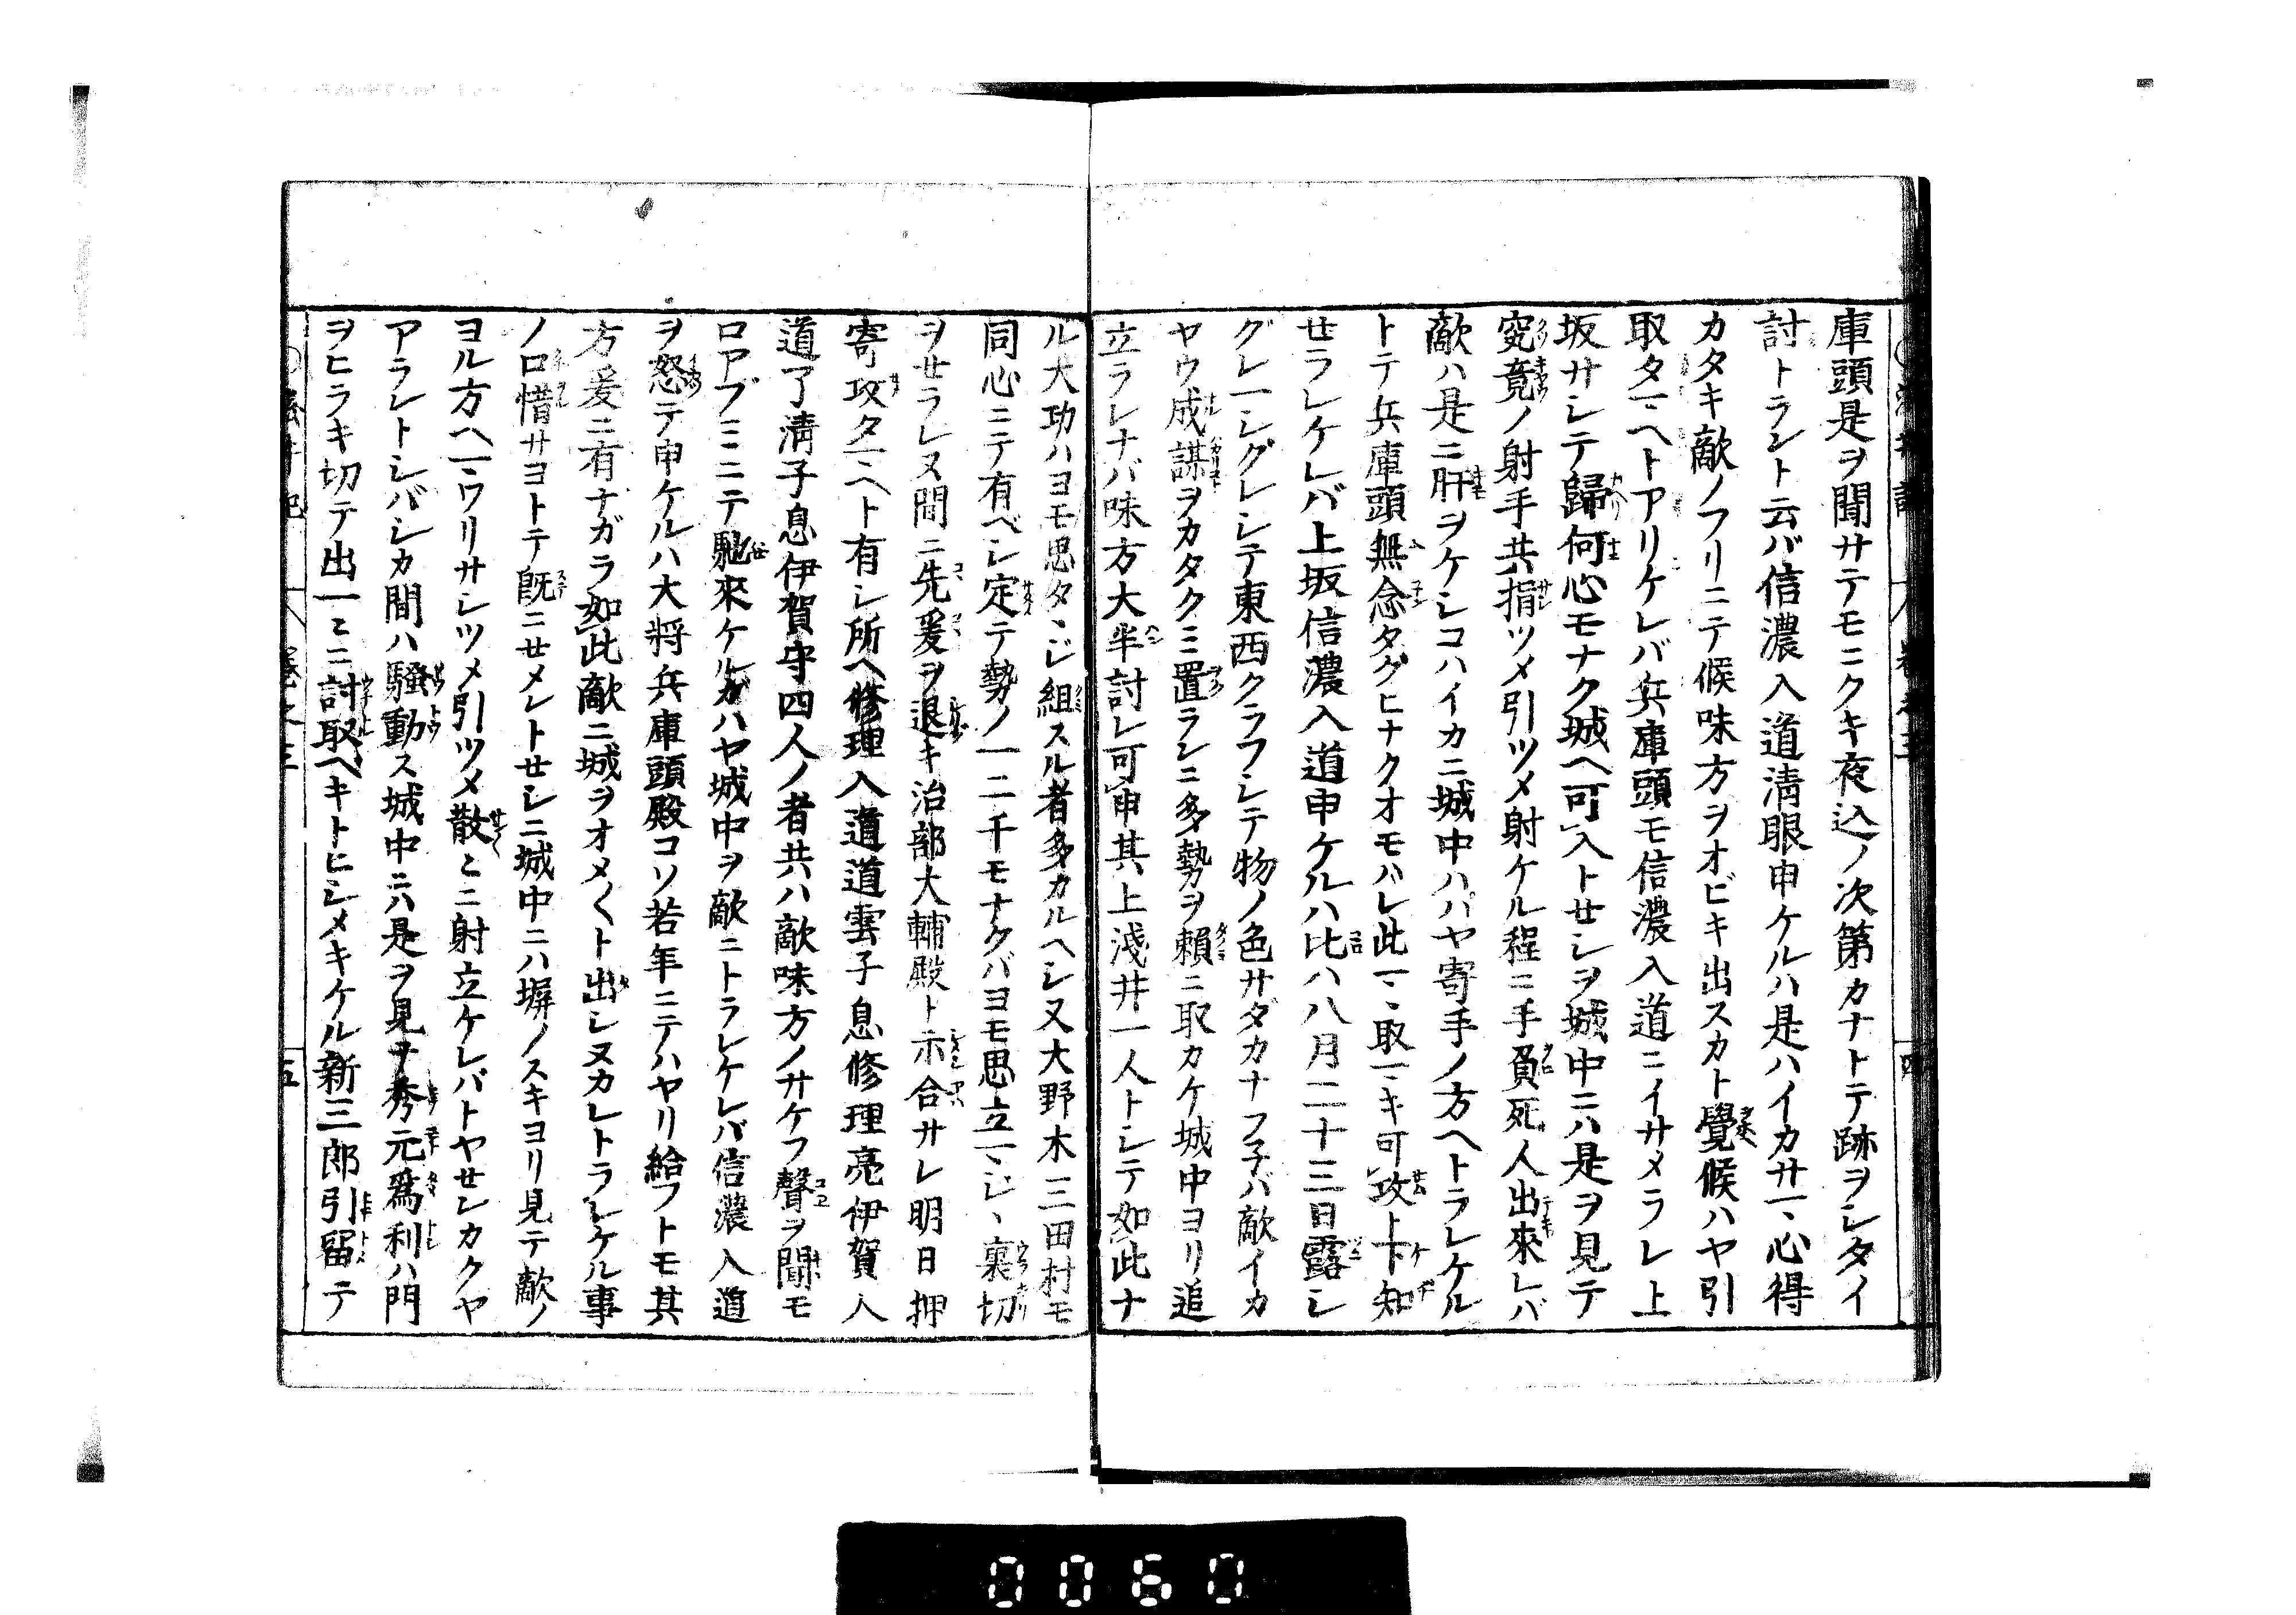 庫頭是ヲ聞サテモニクキ夜込ノ次第カナトテ跡ヲシタイ
討トラント云バ信濃入道清眼申ケルハ是ハイカサマ、心得
カタキ敵ノフリニテ候味方ヲオビキ出スカト覺候ハヤ引
取タマヘトアリケレバ兵庫頭モ信濃入道ニイサメラレ上
坂サシテ歸何心モナク城ヘ可入トせシヲ城中ニハ是ヲ見テ
究竟ノ射手共揃ツメ引ツメ射ケル程ニ手負死人出來レバ
敵ハ是ニ肝ヲケシコハイカニ城中ハハヤ寄手ノ方ヘトラレケル
トテ兵庫頭無念タグヒナクオモハレ此マ、取マキ可攻ト下知
せラレケレバ上坂信濃入道申ケルハ比ハ八月二十三日露シ
グレマシグレシテ東西クラフシテ物ノ色サダカナフ子バ敵イカ
ヤウ成謀ヲカタクミ置ランニ多勢ヲ頼ニ取カケ城中ヨリ追
立ラレナバ味方大半討レ可申其上淺井一人トシテ如此ナ
ル大功ハヨモ思タヽジ組スル者多カルヘシ又大野木三田村モ
同心ニテ有ベシ定テ勢ノ一二千モナクバヨモ思立マジ、裏切
ヲせラレヌ間ニ先爰ヲ退キ治部大輔殿ト示合サレ明日押
寄攻タマヘト有シ所ヘ修理入道道雲子息修理亮伊賀入
道了清子息伊賀守四人ノ者共ハ敵味方ノサケフ聲ヲ聞モ
ロアブミニテ馳來ケルガハヤ城中ヲ敵ニトラレケレバ信濃入道
ヲ怒テ申ケルハ大将兵庫頭殿コソ若年ニテハヤリ給フトモ其
方爰ニ有ナガラ如此敵ニ城ヲオメ〱ト出シヌカレトラレケル事
ノ口惜サヨトテ既ニせメントせシニ城中ニハ塀ノスキヨリ見テ敵ノ
ヨル方ヘマワリサシツメ引ツメ散々ニ射立ケレバトヤせシカクヤ
アラントシバシカ間ハ騒動ス城中ニハ是ヲ見テ秀元為利ハ門
ヲヒラキ切テ出一々ニ討取ヘキトヒシメキケル新三郎引留テ